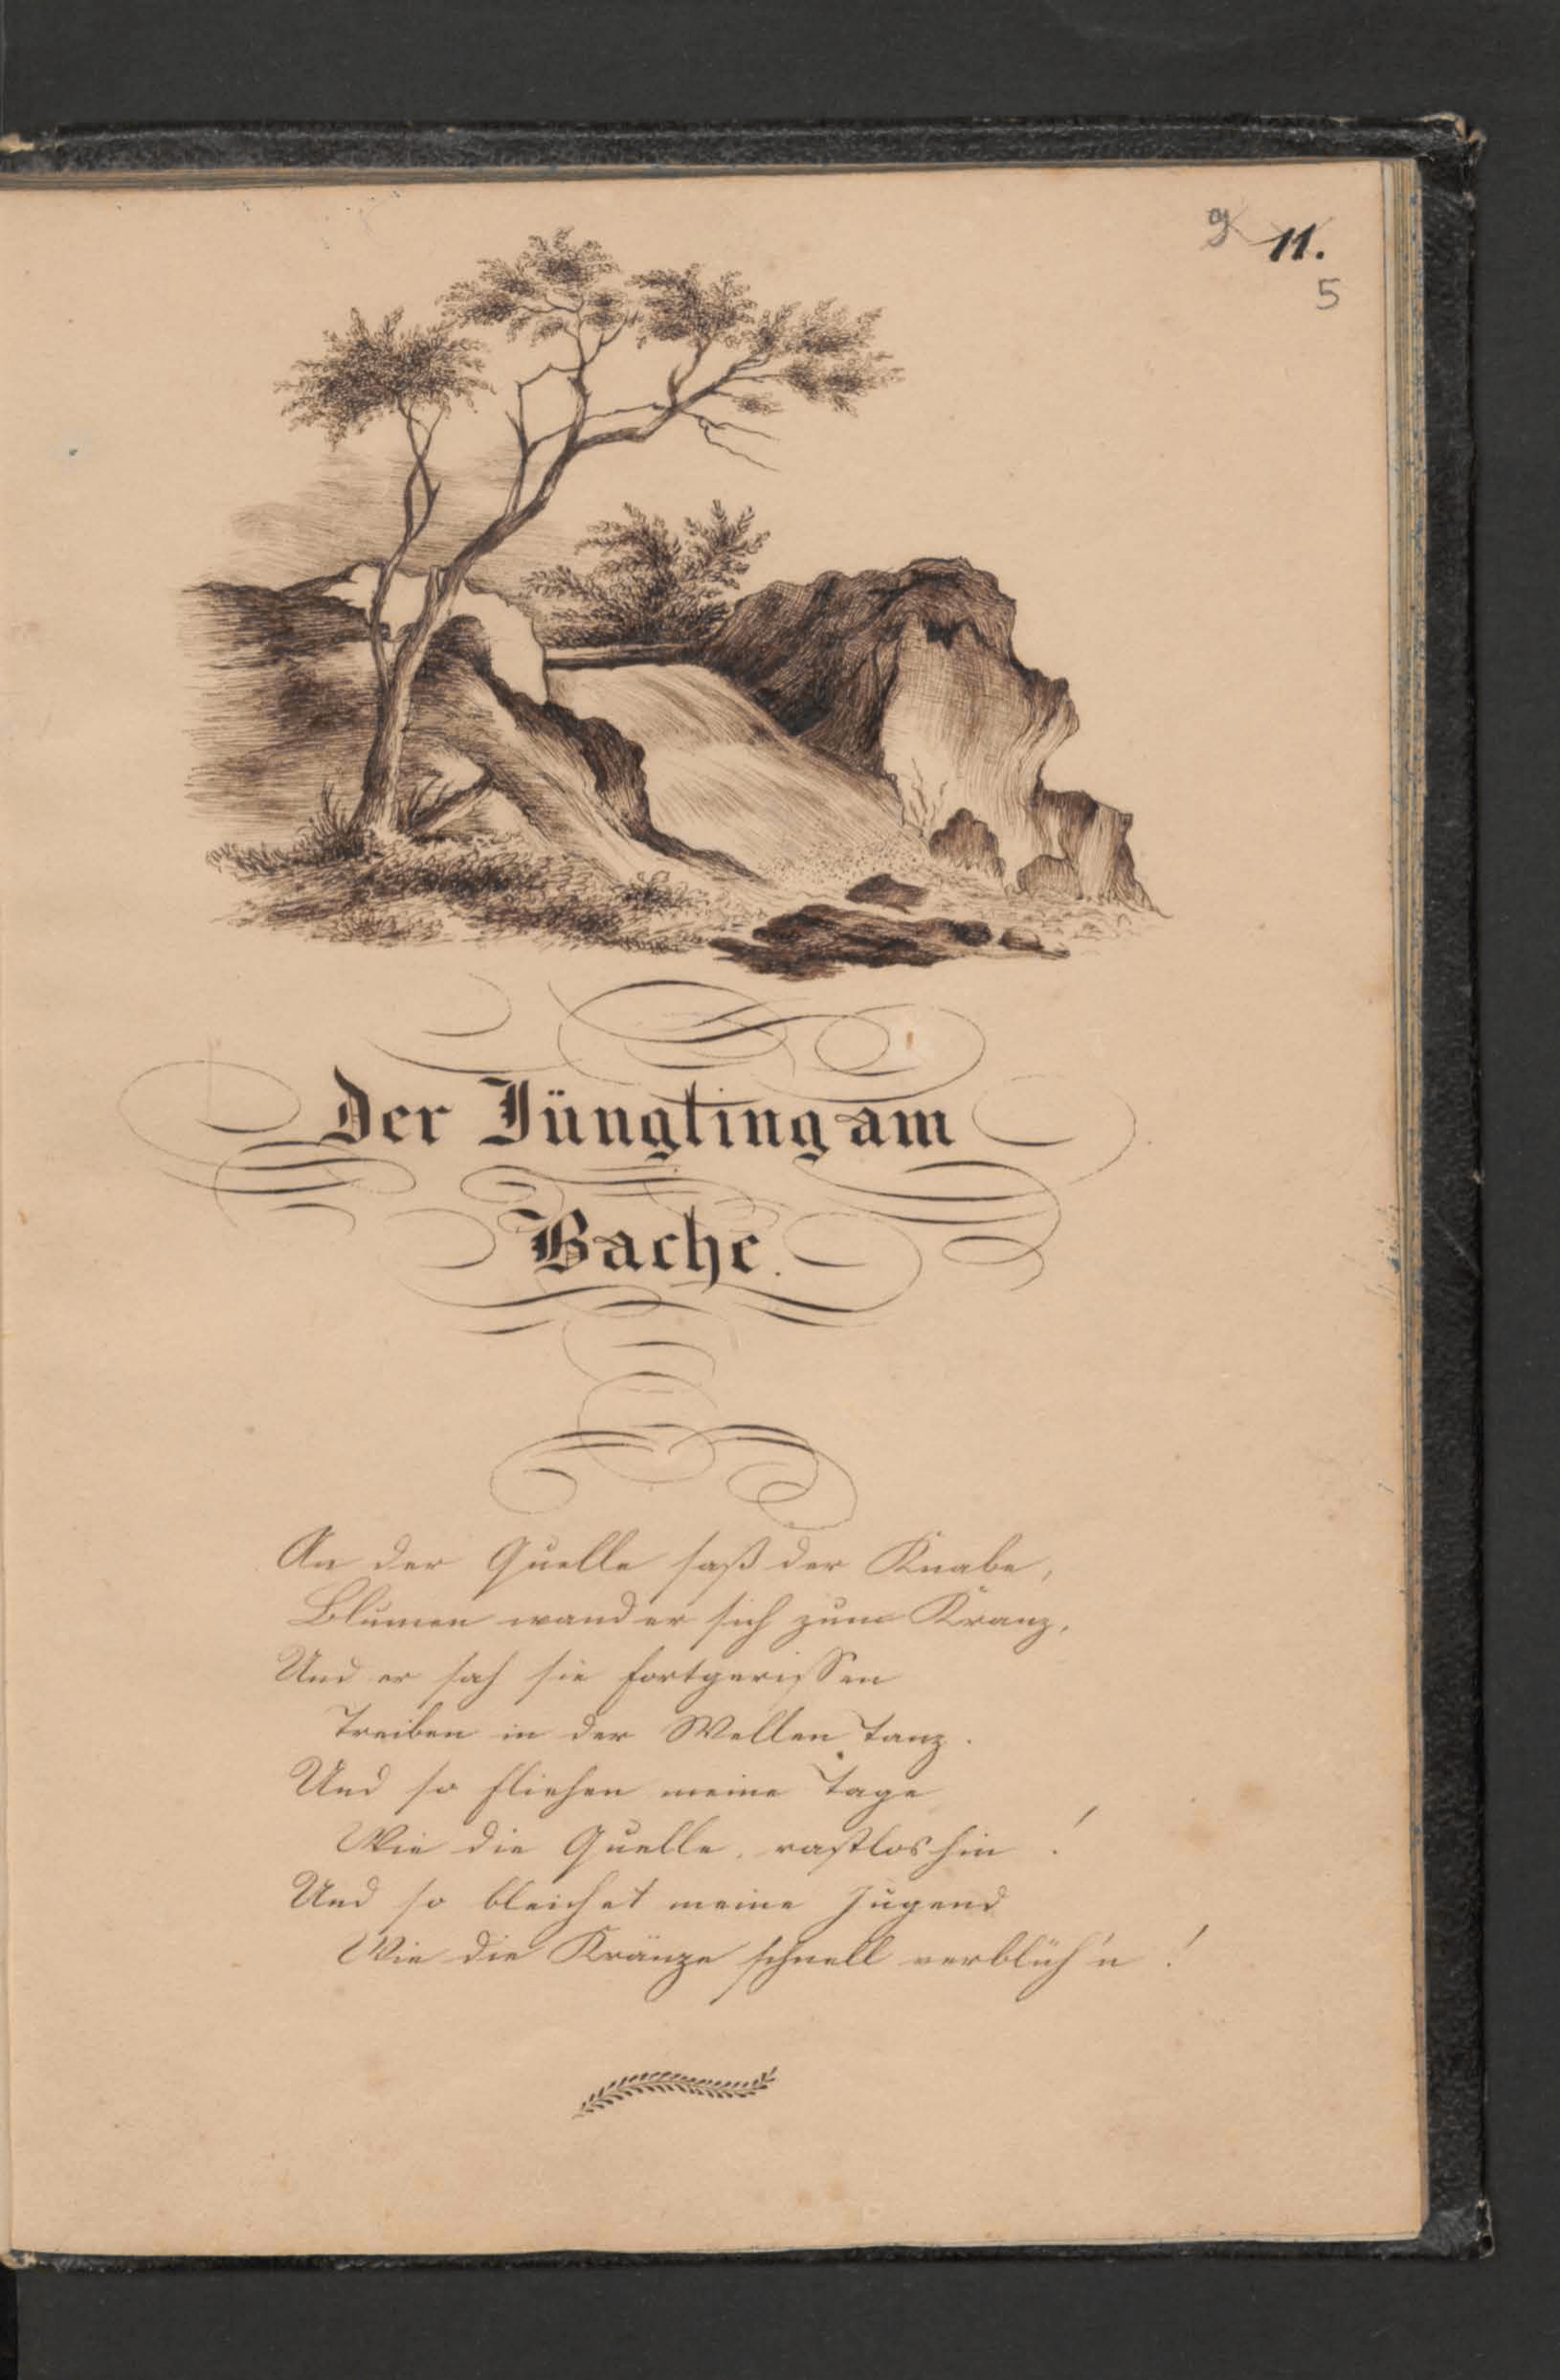 9 11.
5
Der Jüngling am
Bache.
An der Quelle saß der Knabe,
Blumen wand er sich zum Kranz,
Und er sah sie fortgerissen
Treiben in der Wellen Tanz.
Und so fliehen meine Tage
Wie die Quelle, rastlos hin!
Und so bleichet meine Jugend
Wie die Kränze schnell verblüh'n!